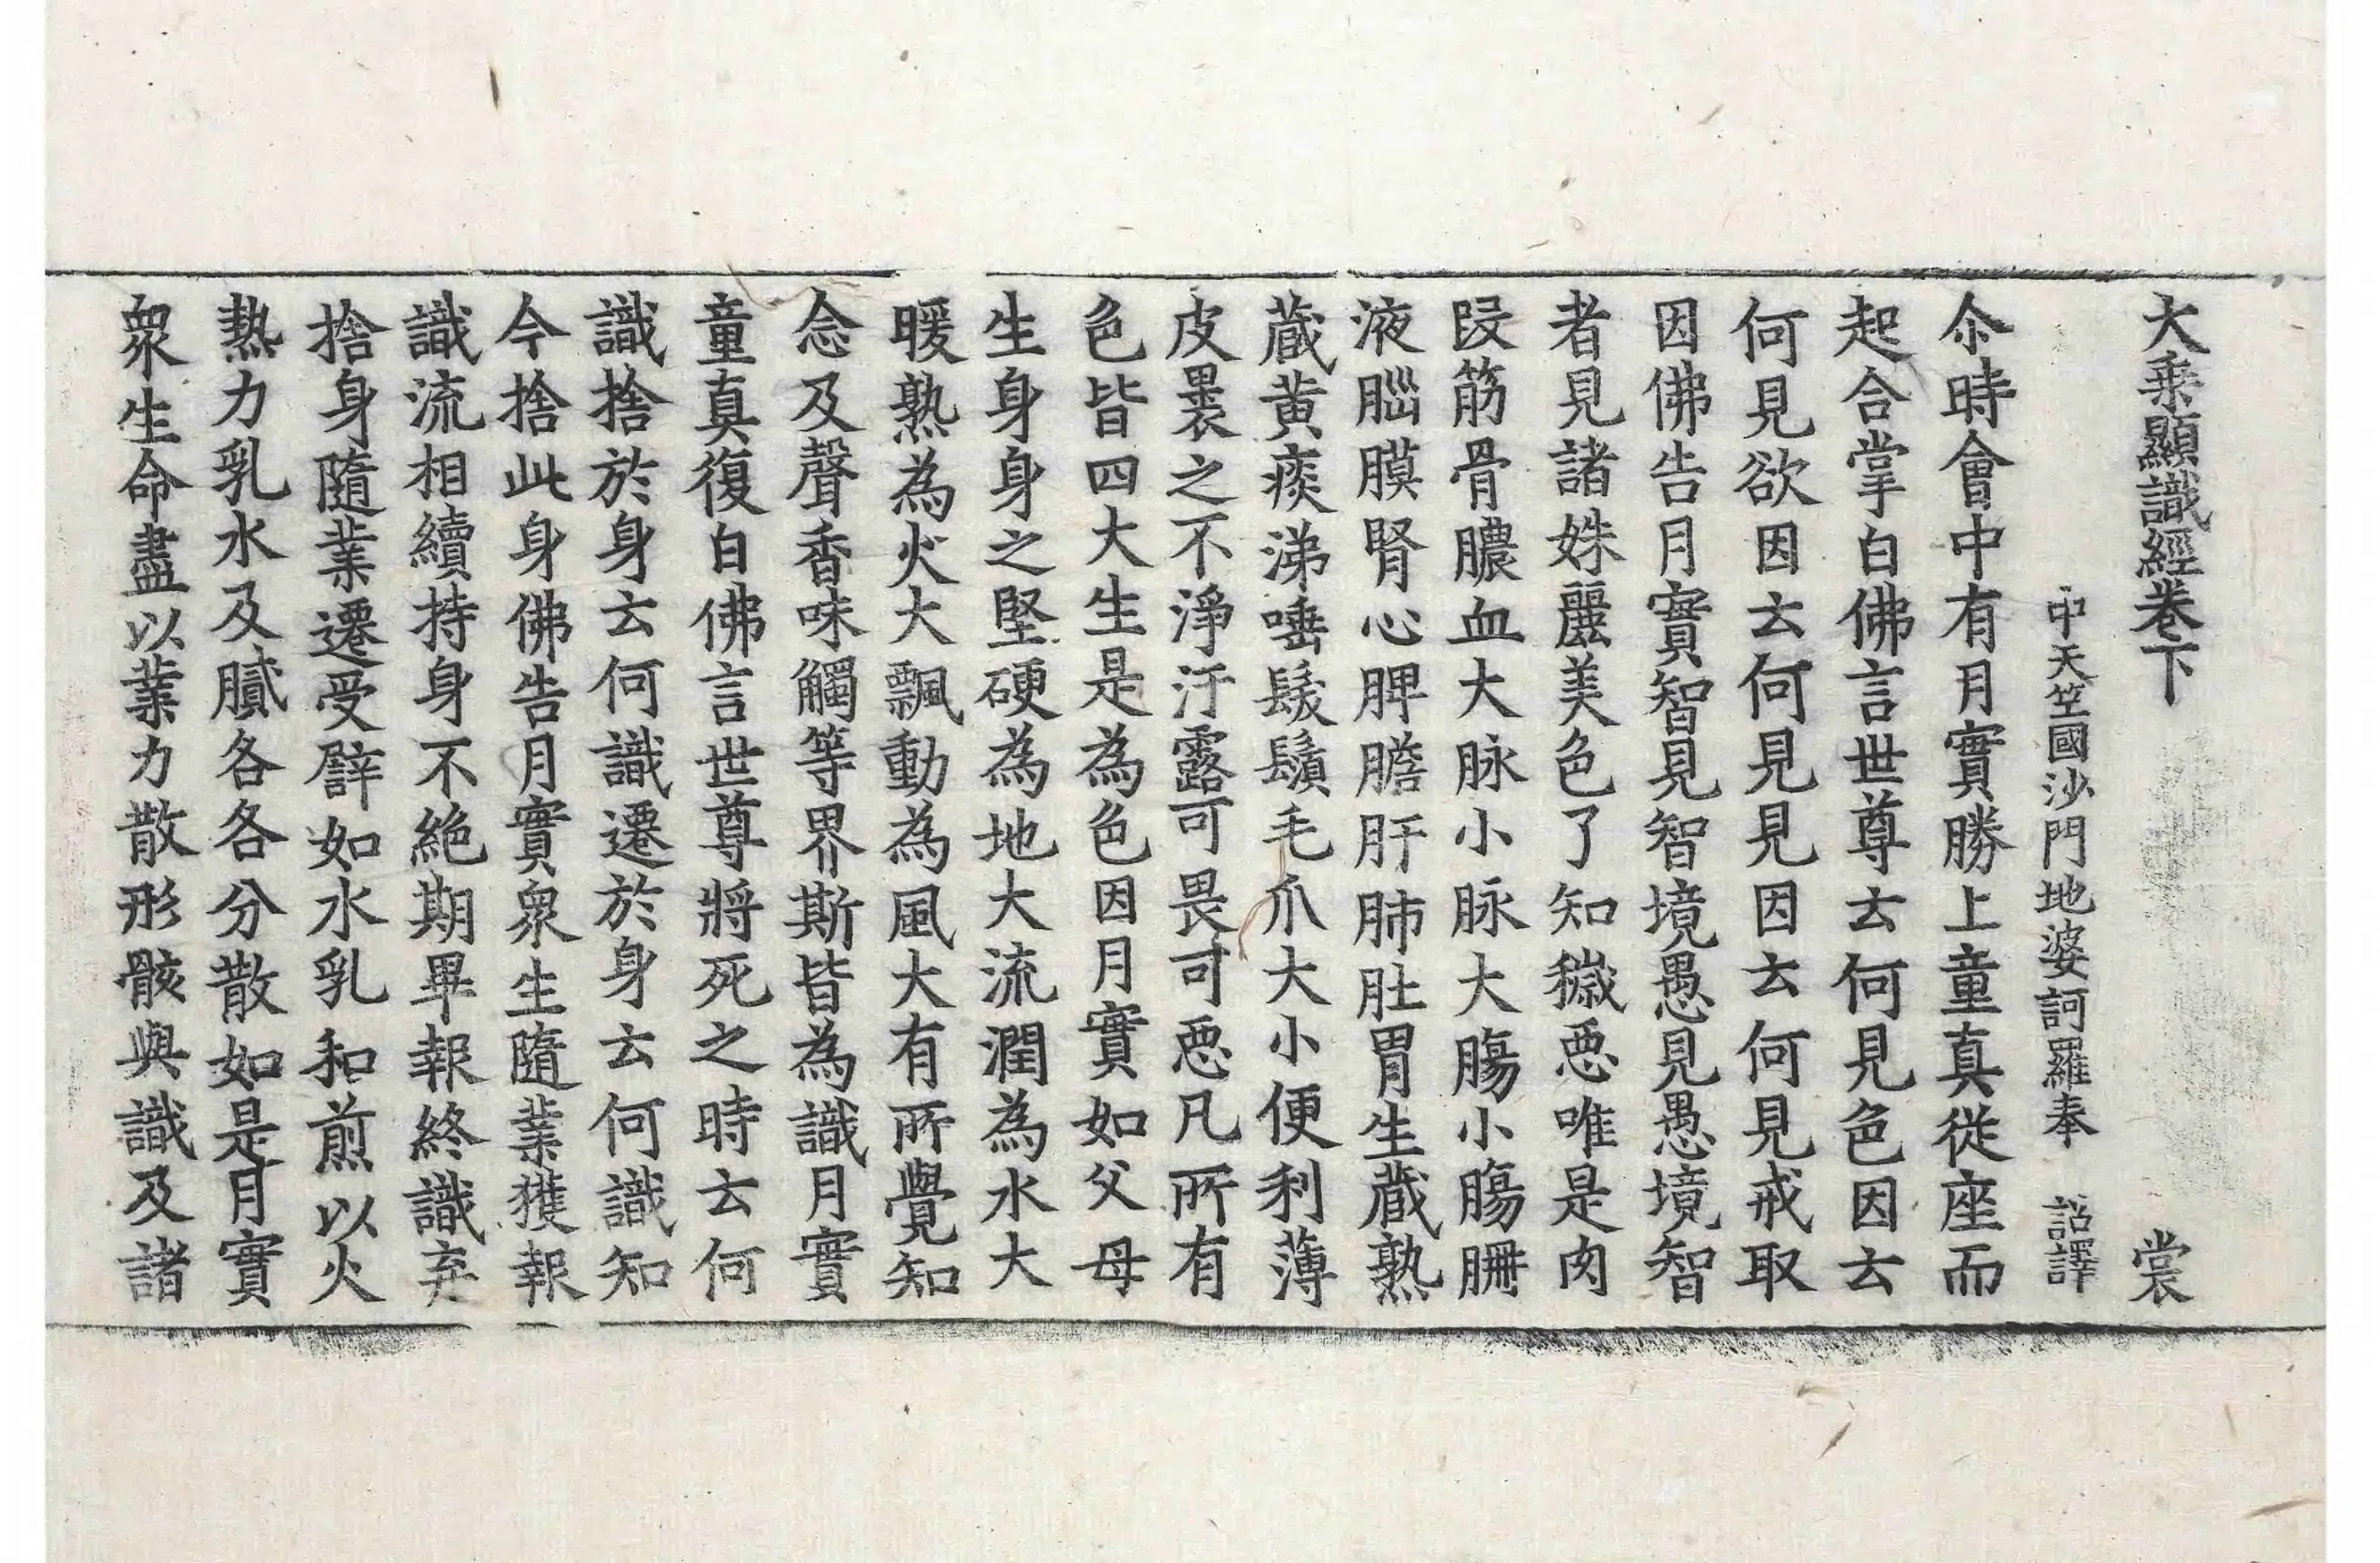 大乗顯識經卷下 裳
中天竺國沙門地婆訶羅奉 詔譯
尒時會中有月實勝上童真從座而
起合掌白佛言世尊云何見色因云
何見欲因云何見見因云何見戒取
因佛告月實智見智境愚見愚境智
者見諸姝麗美色了知穢惡唯是肉
段筋骨膿血大脉小脉大膓小膓𦙱
液腦膜腎心脾膽肝肺肚胃生蔵熟
蔵黄痰涕唾髮鬚毛爪大小便利薄
皮裹之不淨汙露可畏可惡凡所有
色皆四大生是為色因月實如父母
生身身之堅硬為地大流潤為水大
暖熟為火大飄動為風大有所覺知
念及聲香味觸等界斯皆為識月實
童真復白佛言世尊將死之時云何
識捨於身云何識遷於身云何識知
今捨此身佛告月實衆生隨業獲報
識流相續持身不絶期畢報終識弃
捨身隨業遷受譬如水乳和煎以火
熱力乳水及膩各各分散如是月實
衆生命盡以業力散形骸與識及諸